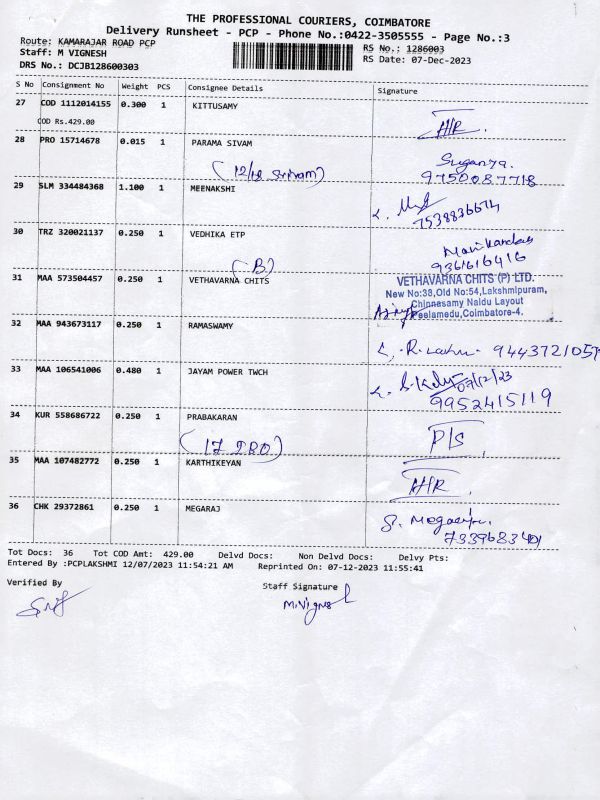 THE PROFESSIONAL COURIERS, COIMBATORE
Delivery Runsheet - PCP - Phone No.:0422-3505555 - Page No.:3
Route: KAMARAJAR ROAD PCP RS No.: 1286003
Staff: M VIGNESH RS Date: 07-Dec-2023
DRS No.: DCJB128600303
S No Consignment No Weight PCS Consignee Details Signature
27 COD 1112014155 0.300 1 KITTUSAMY
COD Rs.429.00 A/R
28 PRO 15714678 0.015 1 PARAMA SIVAM
Suganya.
9750087718
29 SLM 334484368 1.100 1 MEENAKSHI
7538836674
30 TRZ 320021137 0.250 1 VEDHIKA ETP
Manikandan
9361616416
(B)
31 MAA 573504457 0.250 1 VETHAVARNA CHITS
VETHAVARNA CHITS (P) LTD.
New No:38,Old No:54,Lakshmipuram,
Chinnasamy Naidu Layout
Peelamedu,Coimbatore-4.
32 MAA 943673117 0.250 1 RAMASWAMY
9443721057
33 MAA 106541006 0.480 1 JAYAM POWER TWCH
07/12/23
9952415119
34 KUR 558686722 0.250 1 PRABAKARAN
P/S
35 MAA 107482772 0.250 1 KARTHIKEYAN
A/R
36 CHK 29372861 0.250 1 MEGARAJ
Tot Docs: 36 Tot COD Amt: 429.00 Delvd Docs: Non Delvd Docs: Delvy Pts:
Entered By :PCPLAKSHMI 12/07/2023 11:54:21 AM Reprinted On: 07-12-2023 11:55:41
Verified By Staff Signature
M.Vignesh